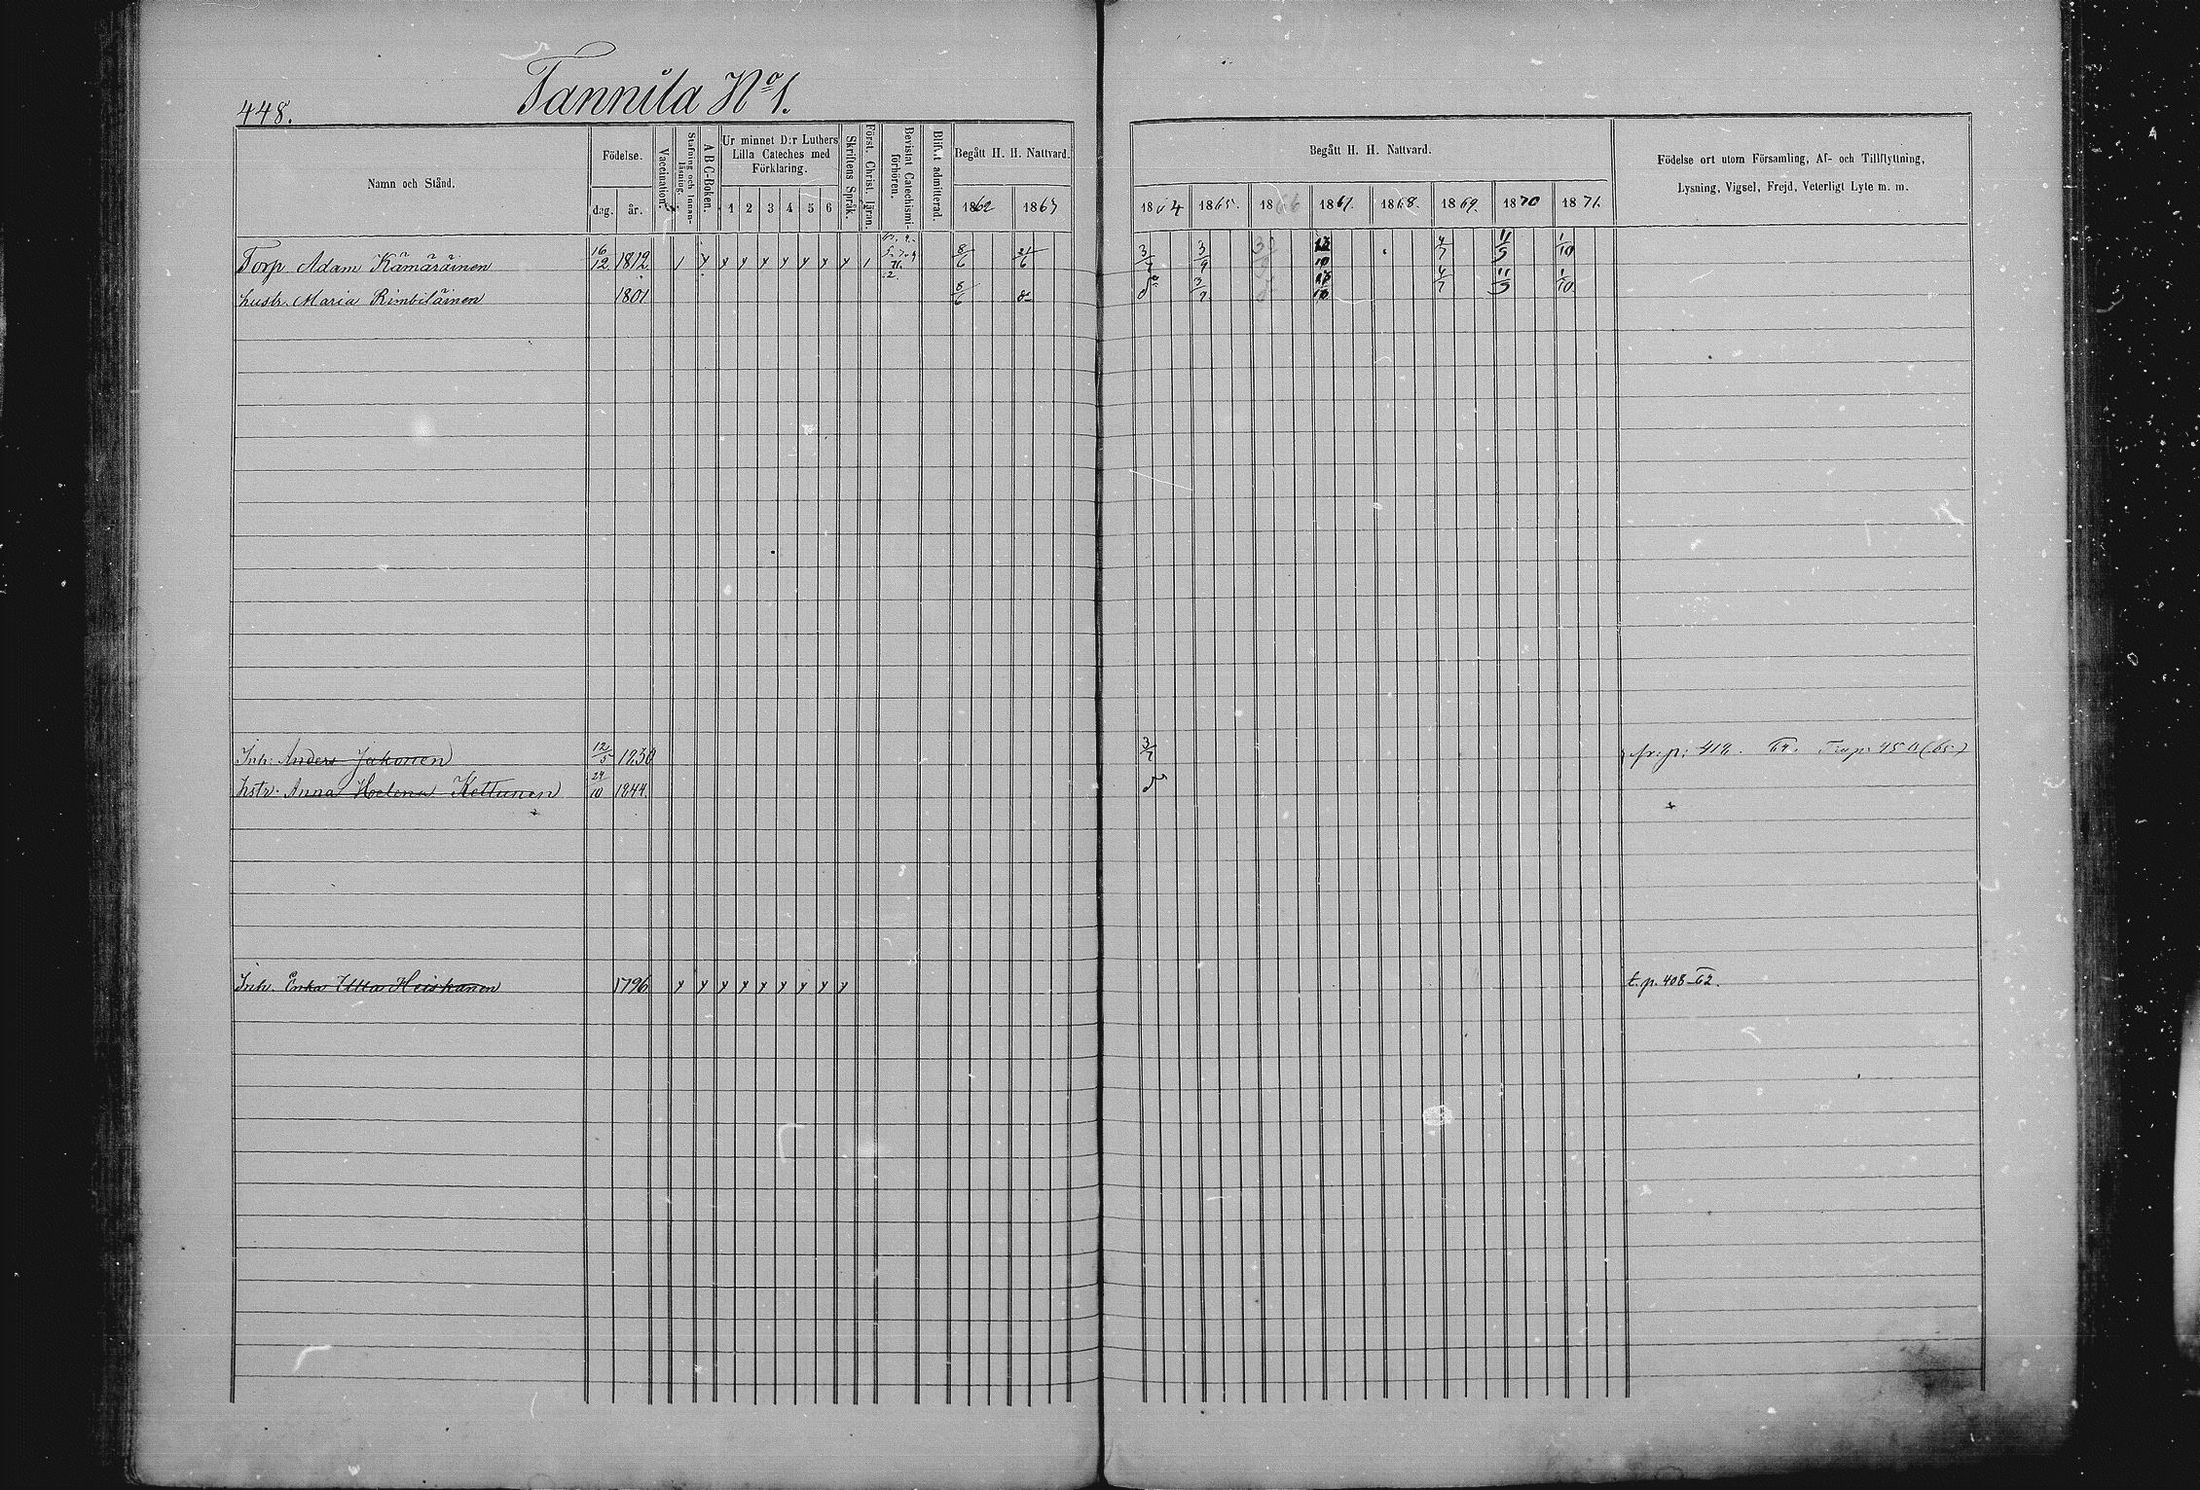 448.
Tannila No 1.
Namn och Stånd.
Födelse.
dag. år.
Vaccination.
Stafning och Innan-läsning.
A B C-Boken.
Ur minnet D:r Luthers Lilla Cateches med Förklaring.
1 2 3 4 5 6
Skriftens Språk.
Först. Christ. läran.
Bevistat Catechismi-förhören.
Blifvit admitterad.
Begått H. H. Nattvard.
1862 1863
Begått H. H. Nattvard.
1864 1865. 1866 1867. 1868. 1869. 1870 1871.
Födelse ort utom Församling, Af- och Tillflyttning,
Lysning, Vigsel, Frejd, Veterligt Lyte m. m.
Torp. Adam Kämäräinen 16/12 1812 8/6 21/6 3/7 3/9 4/7 11/5 1/10
hustr. Maria Rimbiläinen 1801 8/6 3/9 4/7 11/5 1/10
Inh. Anders Jakonen 12/5 1830 3/7 fr. p. 412. 64. T. p. 450 (65.)
hstr. Anna Helena Kettunen 29/10 1844.
Inh. Enka Ulla Heiskanen 1796 y y y y y y y y y t. p. 408-62.